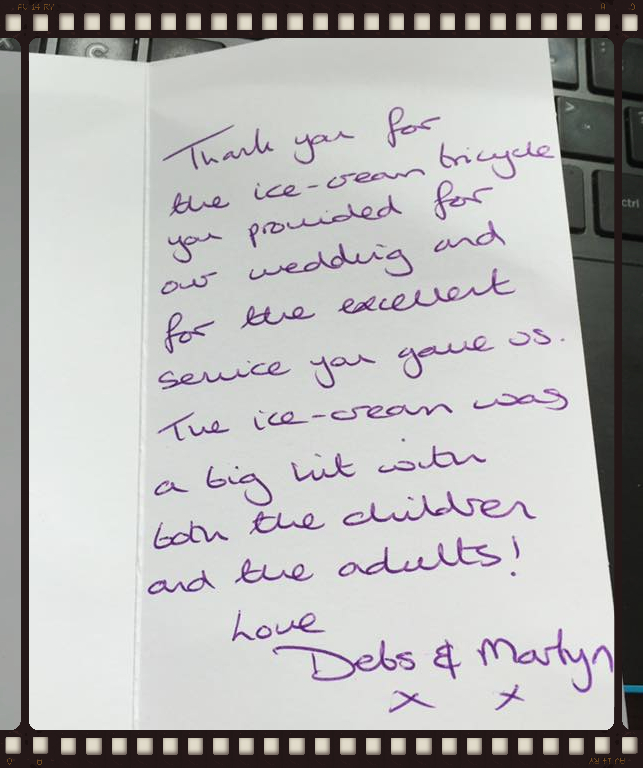 Thank you for
the ice-cream tricycle
you provided for
our wedding and
for the excellent
service you gave us.
The ice-cream was
a big hit with
both the children
and the adults!
Love
Debs & Martyn
x x
ctrl